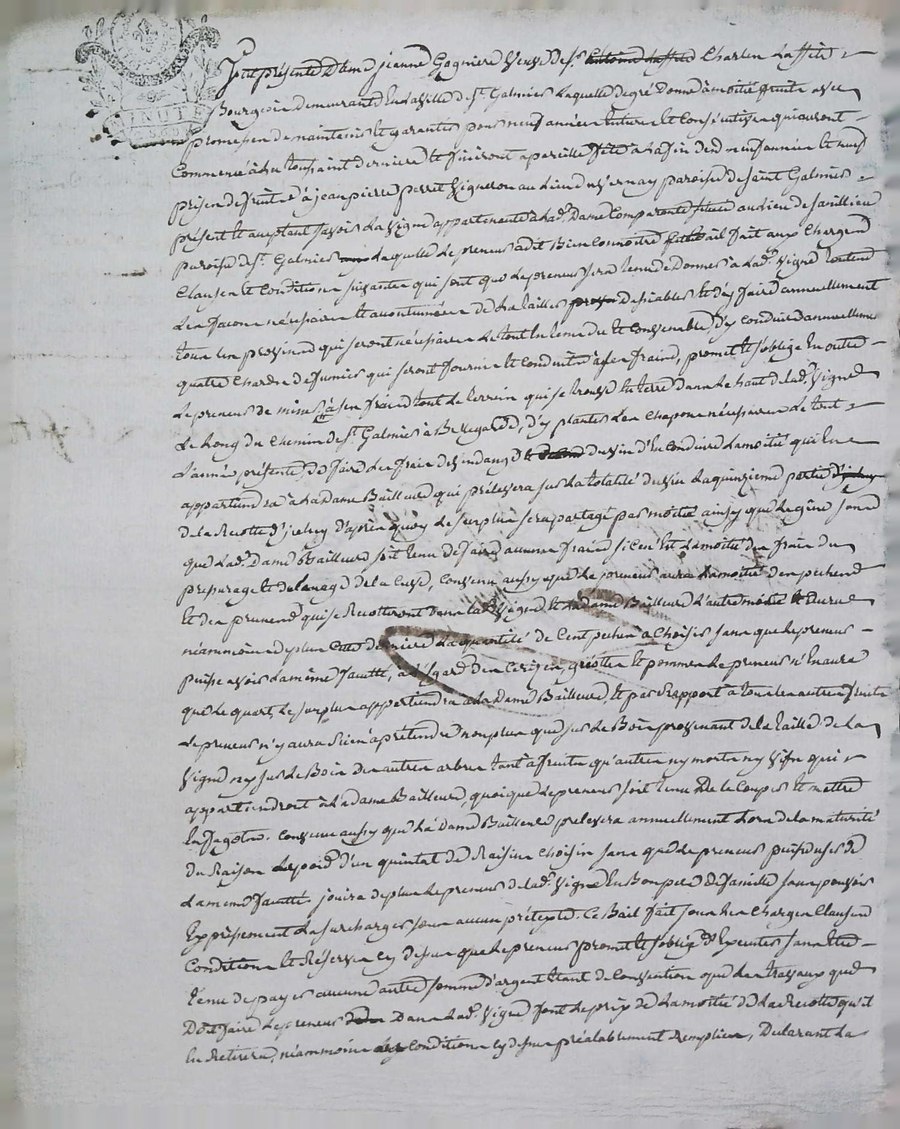 MINUTE
fut presente Dame jeanne Gagniere Veuve de Sr. Antoine Laffité Charles Laffité
Bourgeois demeurante En la ville de St. Galmier Laquelle de gré donne à moitié fruits avec
promesse de maintenir Et garantir pour neuf années future Et Consécutives qui auront
Commencé à la toussaint derniere Et finiront à pareille fête à la fin desd neuf années Et neuf
prises de fruits à jean pierre perret Vigneron au Lieu du Vernay paroisse de Saint Galmier
présent Et acceptant savoir La Vigne appartenante à Lad. Dame Comparante située au Lieu de
paroisse de St. Galmier Laquelle Le preneur a dit Bien Connoitre Bail fait aux Charges
Clauses Et Conditions suivantes qui sont que Le preneur sera tenu de Donner à Lad. Vigne toutes
Les façons nécessaires Et accoutumées de La tailler Et d'y faire annuellement
tous Les provins qui seront nécessaires Le tout En tems du Et Convenable, d'y Conduire annuellement
quatre Chards de fumier qui seront fournis Et Conduits à ses fraix, promet Et s'oblige En outre
Le preneur de miner à ses fraix tout Le terrein qui se trouve En terre Dans Le haut de Lad. Vigne
Le Long du Chemin de St. Galmier à Bellegarde, d'y planter Les Chapons nécessaires Le tout
L'année présente, de faire Les fraix de Vendange Et du vin d'En Conduire La moitié qui En
appartiendra à La dame Bailleuse qui prélevera sur La totalité du vin La quinzieme partie
de la Recotte d'jcelluy d'après quoy Le surplus sera partagé par moitié ainsy que Le gêne sans
que Lad. Dame Bailleuse soit tenue de faire aucuns fraix si ce n'Est La moitié des fraix du
pressurage Et de La Cuve, Convenu aussy que Le preneur aura La moitié des peches
Et des prunes qui se Recolteront dans La Vigne Et La dame Bailleuse L'autre moitié
néammoins de plus Cette derniere La quantité de Cent peches à Choisir sans que Le preneur
puisse avoir La même faculté, à L'Egard des Cerises griottes Et pommes Le preneur n'En aura
que Le quart, Le surplus appartiendra à La dame Bailleuse, Et par Rapport à tous Les autres fruits
Le preneur n'y aura Rien à prétendre non plus que sur Le Bois provenant de La taille de La
Vigne ny sur Le Bois des autres arbres tant à fruits qu'autres ny morts ny Vifs qui
appartiendront à La dame Bailleuse, quoique Le preneur soit tenu De Le Couper Et mettre
En fagots. Convenu aussy que La dame Bailleuse prélevera annuellement Lors de La maturité
du Raisin Le poids d'un quintal de Raisins Choisis sans que Le preneur puisse user de
La meme faculté. jouira de plus Le preneur de Lad. Vigne En Bon pere de famille sans pouvoir
Expressement La surcharger sous aucun prétexte. Ce Bail fait sous Les Charges Clauses
Conditions Et Réserves Cy dessus que Le preneur promet Et s'oblige d'Executer sans Etre
tenu de payer aucune autre somme d'argent Etant de Convention que Les travaux que
Doit faire Le preneur Dans Lad. Vigne sont Le prix de La moitié de La Recotte qu'il
En Retirera, néammoins Les Conditions Cy dessus préalablement Remplies, Déclarant La